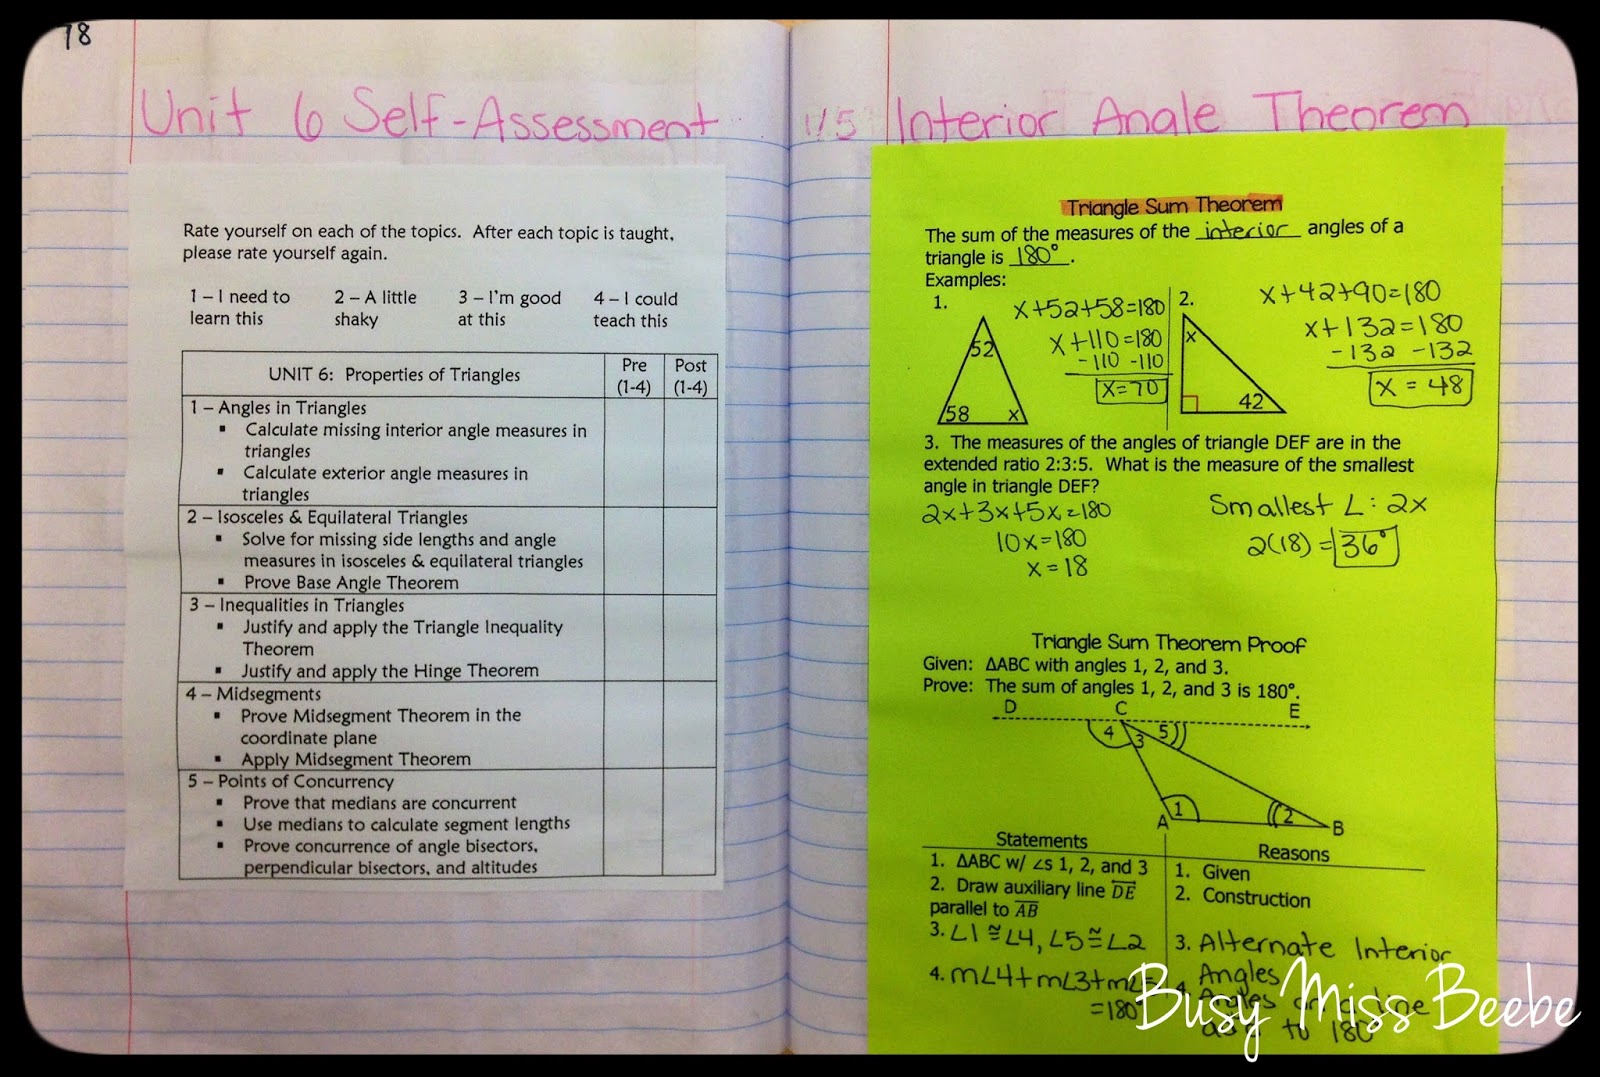 78
Unit 6 Self-Assessment
Rate yourself on each of the topics. After each topic is taught,
please rate yourself again.
1 – I need to learn this
2 – A little shaky
3 – I'm good at this
4 – I could teach this
UNIT 6: Properties of Triangles
Pre (1-4)
Post (1-4)
1 – Angles in Triangles
▪ Calculate missing interior angle measures in
triangles
▪ Calculate exterior angle measures in
triangles
2 – Isosceles & Equilateral Triangles
▪ Solve for missing side lengths and angle
measures in isosceles & equilateral triangles
▪ Prove Base Angle Theorem
3 – Inequalities in Triangles
▪ Justify and apply the Triangle Inequality
Theorem
▪ Justify and apply the Hinge Theorem
4 – Midsegments
▪ Prove Midsegment Theorem in the
coordinate plane
▪ Apply Midsegment Theorem
5 – Points of Concurrency
▪ Prove that medians are concurrent
▪ Use medians to calculate segment lengths
▪ Prove concurrence of angle bisectors,
perpendicular bisectors, and altitudes
1/5 Interior Angle Theorem
Triangle Sum Theorem
The sum of the measures of the interior angles of a
triangle is 180°.
Examples:
1.
52
58
x
x+52+58=180
x+110=180
-110 -110
x=70
2.
x
42
x+42+90=180
x+132=180
-132 -132
x = 48
3. The measures of the angles of triangle DEF are in the
extended ratio 2:3:5. What is the measure of the smallest
angle in triangle DEF?
2x+3x+5x=180
10x=180
x=18
Smallest ∠: 2x
2(18)=36°
Triangle Sum Theorem Proof
Given: ΔABC with angles 1, 2, and 3.
Prove: The sum of angles 1, 2, and 3 is 180°.
D C E
4 3 5
1 2
A B
Statements
1. ΔABC w/ ∠s 1, 2, and 3
2. Draw auxiliary line DE
parallel to AB
3. ∠1≅∠4, ∠5≅∠2
4. m∠4+m∠3+m∠5
=180°
Reasons
1. Given
2. Construction
3. Alternate Interior
Angles
4. Angles on a line
to 180
Busy Miss Beebe